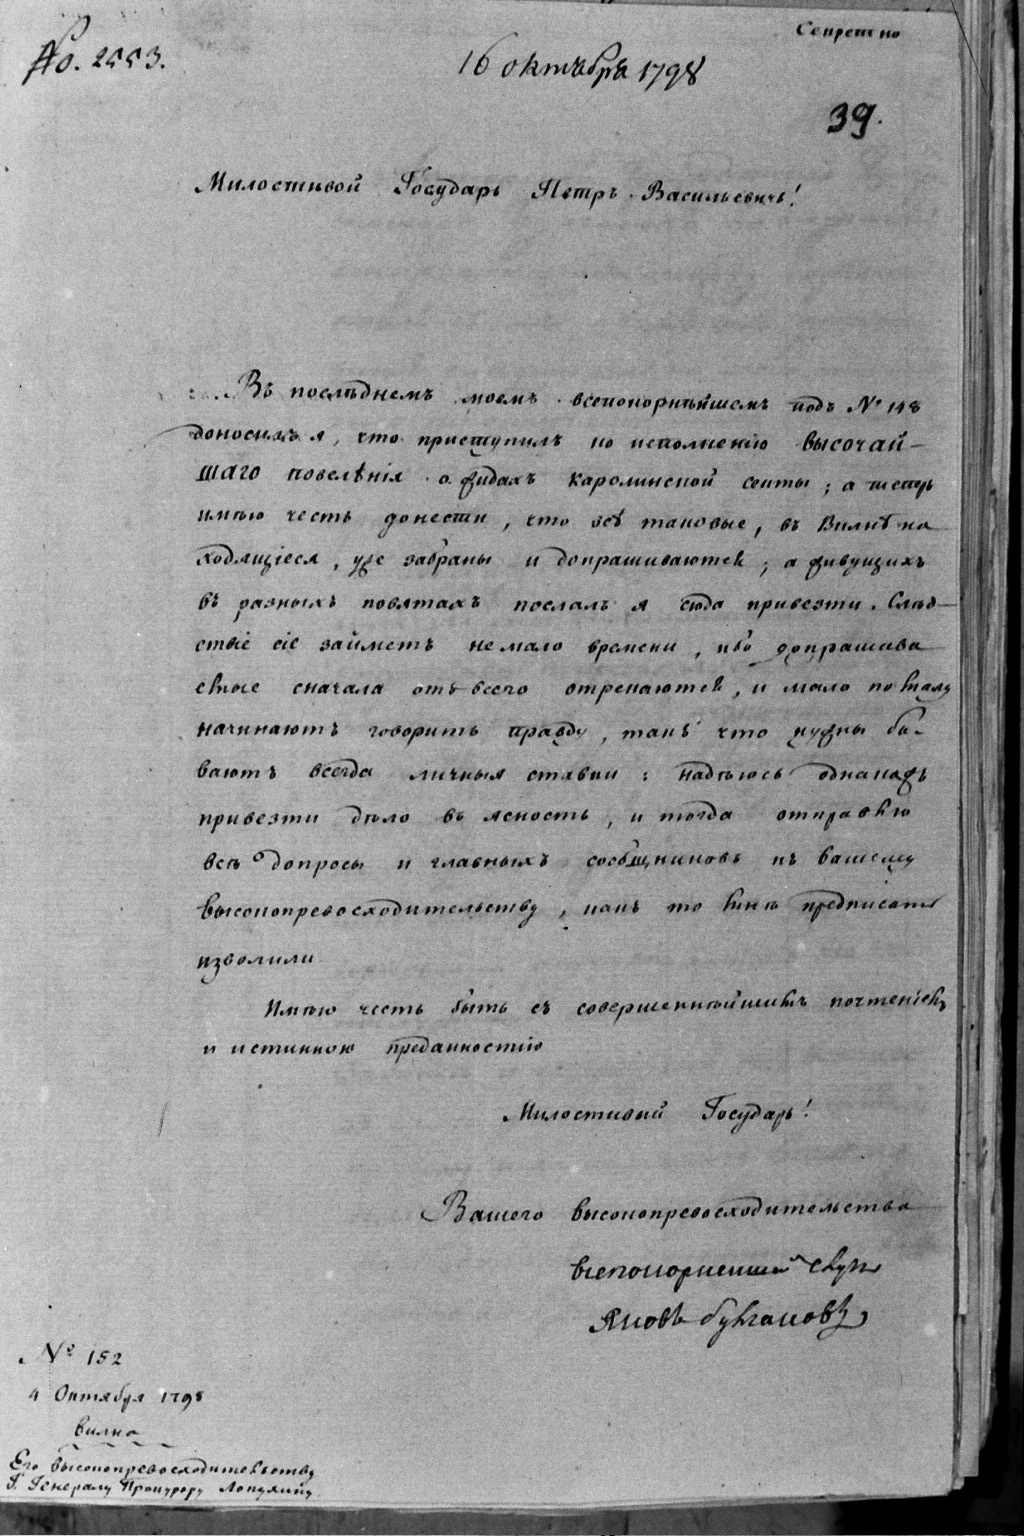 Секретно
No. 2553.
16 октября 1798
39.
Милостивой Государь Петръ Васильевичь!
Въ послѣднемъ моемъ всепокорнѣйшемъ подъ № 148
доносилъ я, что приступилъ ко исполненію высочай-
шаго повелѣнія о жидахъ каролинской секты; а теперь
имѣю честь донести, что всѣ таковые, въ Вильнѣ на
ходящіеся, уже забраны и допрашиваются; а живущихъ
въ разныхъ повятахъ послалъ я сюда привезти. Слѣд-
ствіе сіе займетъ не мало времени, ибо допрашива
емые сначала отъ всего отрекаются, и мало по малу
начинаютъ говорить правду, такъ что нужны бы-
ваютъ всегда личныя ставки: надѣюсь однакожъ
привезти дѣло въ ясность, и тогда отправлю
всѣ допросы и главныхъ сообщниковъ къ вашему
высокопревосходительству, какъ то мнѣ предписать
изволили
Имѣю честь быть съ совершеннѣйшимъ почтеніемъ
и истинною преданностію
Милостивый Государь!
Вашего высокопревосходительства
всепокорнейшей слуга
Яковъ Булгаковъ
№ 152
4 Октября 1798
Вилна
Его высокопревосходительству
Г. Генералу Прокурору Лопухину